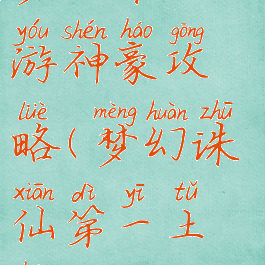 yóu shén háo gōng
游神豪攻
lüè mèng huàn zhū
略(梦幻诛
xiān dì yī tǔ
仙第一土